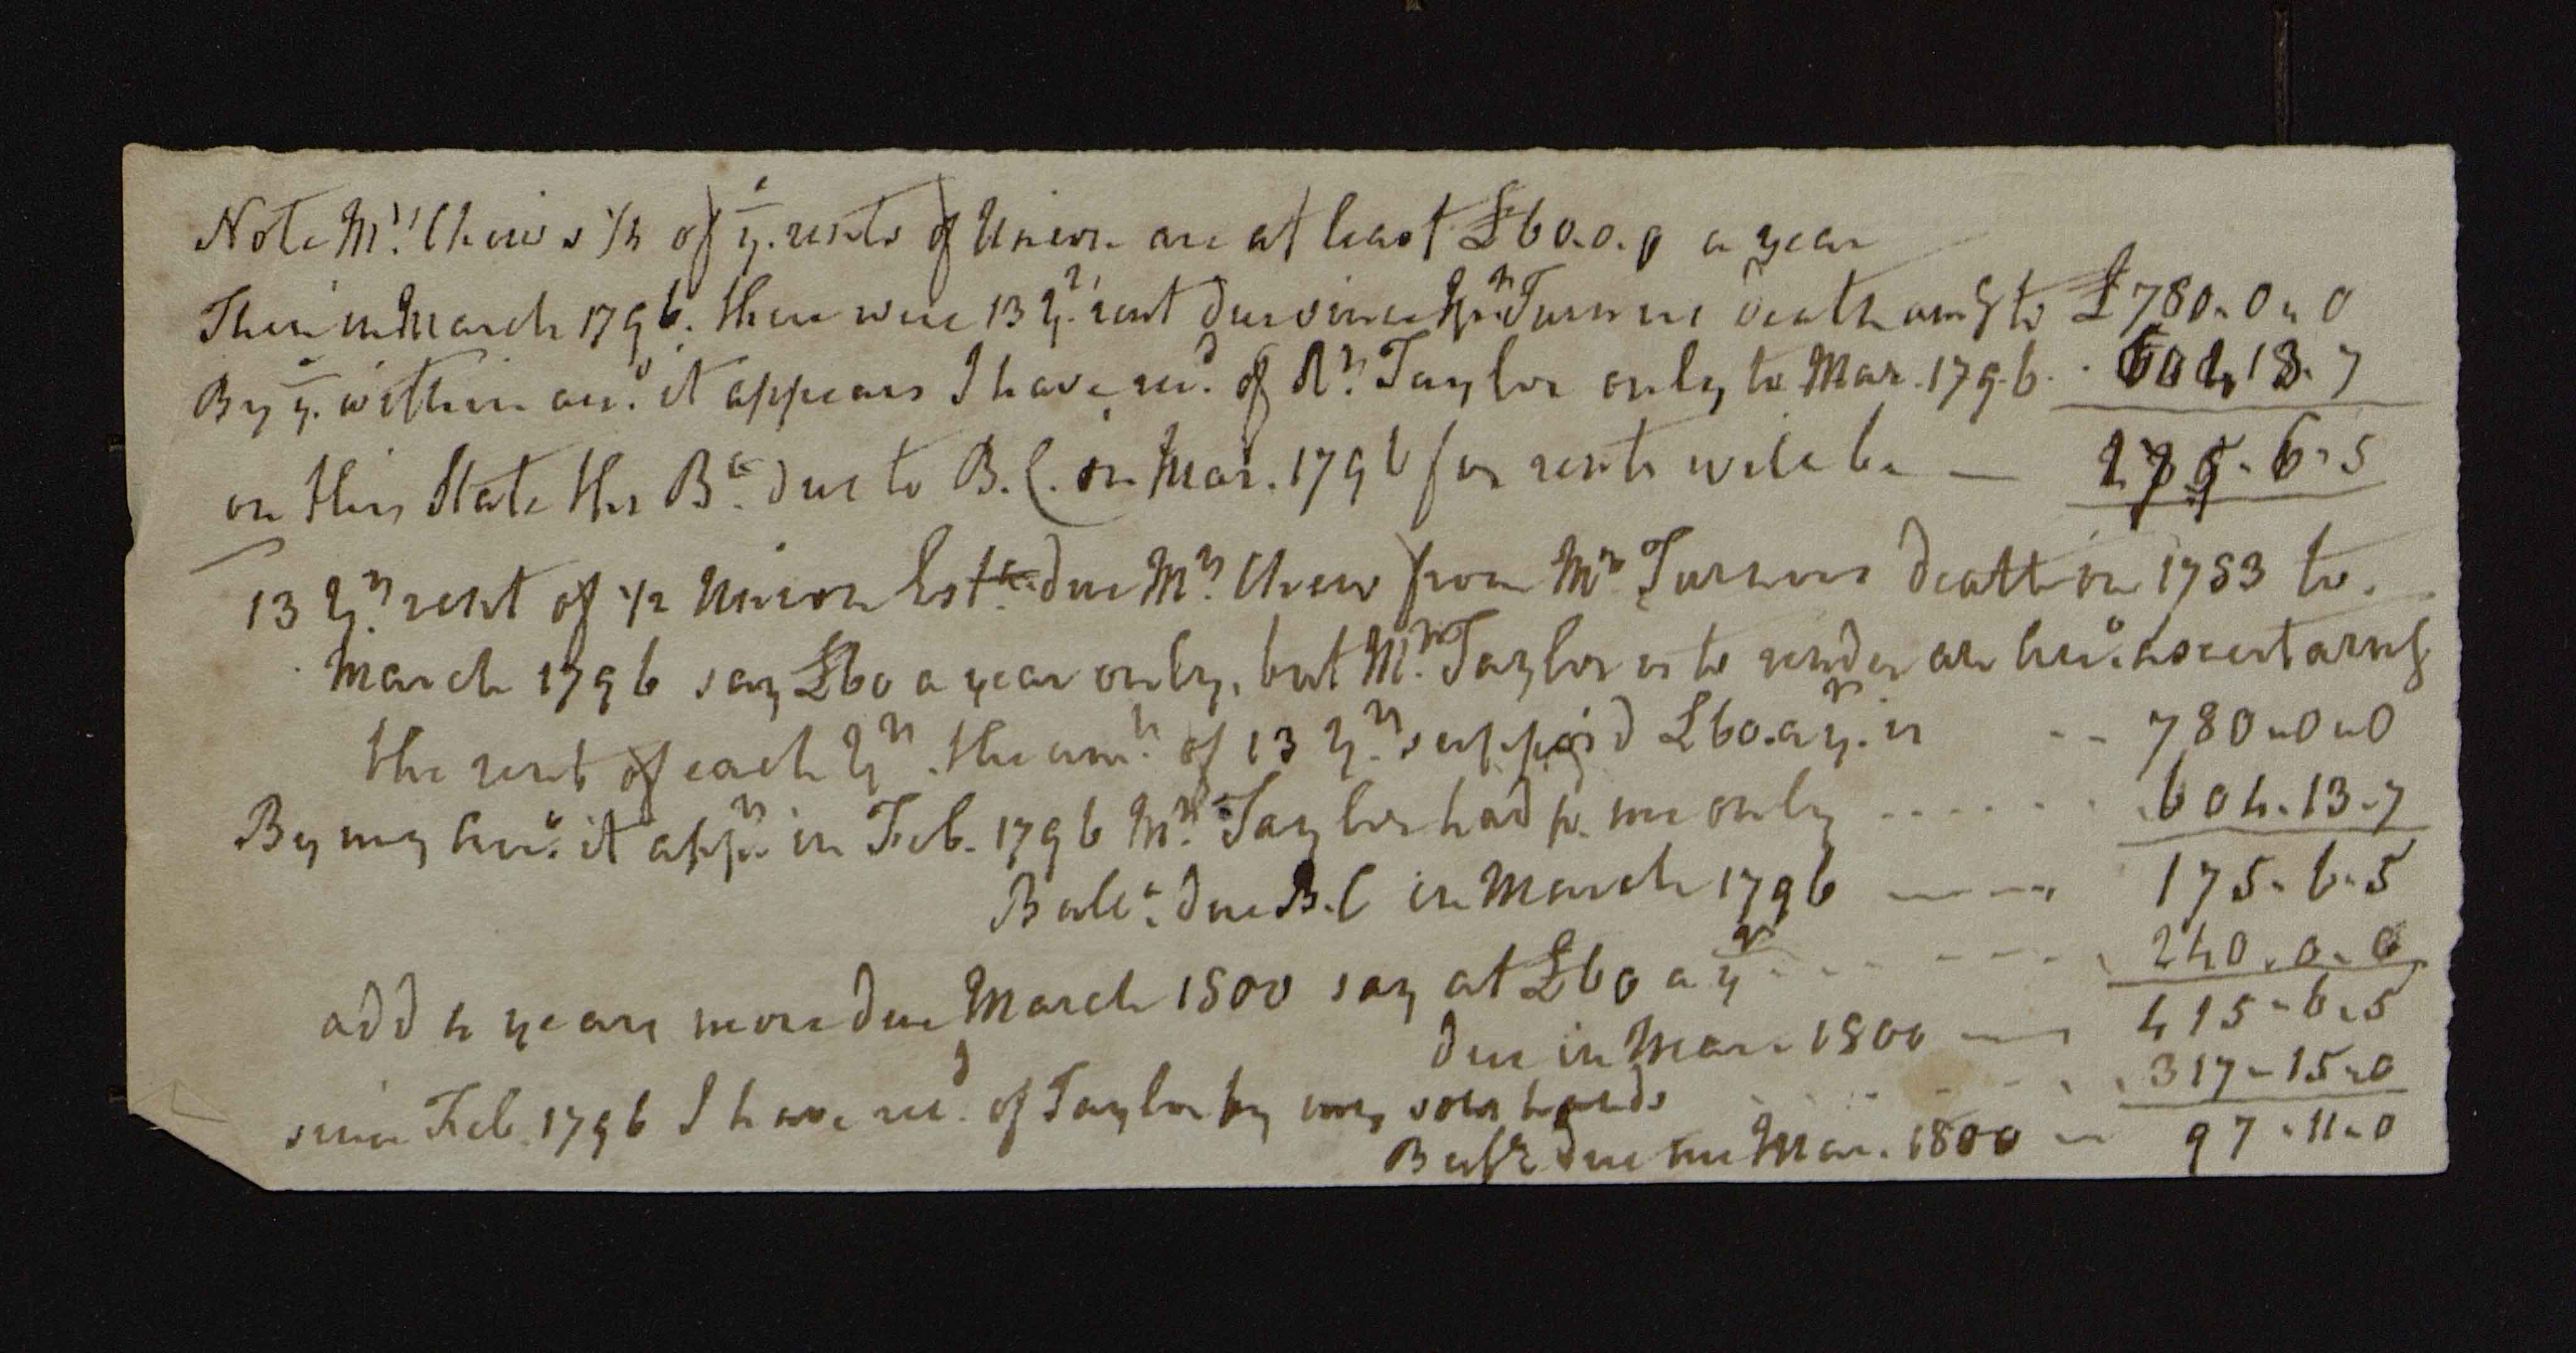 Note Mrs. Chew's 1/2 of ye. rents of Union are at least £60.0.0 a year
Then in March 1796. there were 13 yrs. rent due since Mr. Turners death amg to £780.0.0
By ye. within acct. it appears I have recd. of Mr. Taylor only to Mar. 1796 . . 604.13.7
on this State the Bce. due to B.C. in Mar. 1796 for rents will be — 175.6.5
13 yrs. rent of 1/2 Union Este. due Mrs. Chew from Mr. Turners death in 1783 to
March 1796 say £60 a year only, but Mr. Taylor is to render an Acct. ascertaing
the rent of each yr. the amt. of 13 yrs. suppos'd £60. a yr. is - - 780.0.0
By my Acct. it apprs. in Feb. 1796 Mr. Taylor had pd. me only - - - - - 604.13.7
Balce. due B.C in March 1796 — — 175.6.5
add 4 years more due March 1800 say at £60 a yr - - - - - 240.0.0
due in Mar. 1800 — 415.6.5
since Feb. 1796 I have recd. of Taylor by my own hands - - - - 317.15.0
Balce due me Mar. 1800 — 97.11.0